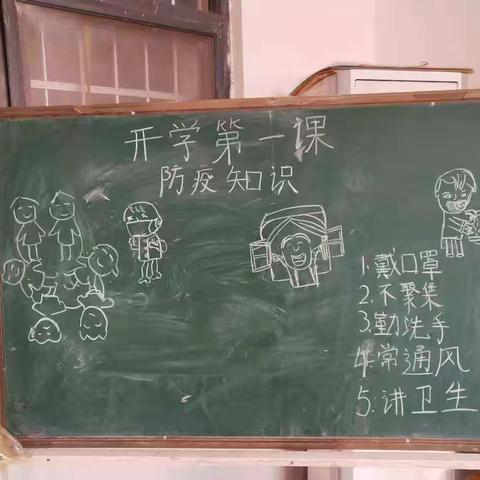 开学第一课
防疫知识
1.戴口罩
2.不聚集
3.勤洗手
4.常通风
5.讲卫生